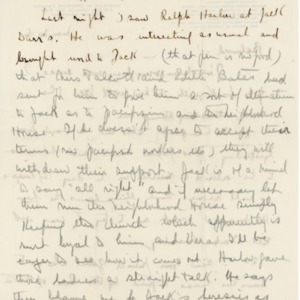 Last night I saw Ralph Harlow at Jack
Darr's. He was interesting as usual and
brought word to Jack (that pen is no good)
that this & Edith Bates had
sent for him to give him a sort of ultimatum
to Jack as to pacifism and to Neighborhood
House. If he doesn't agree to accept these
terms (no pacifist workers, etc.) they will
withdraw their support. Jack is of a mind
to say "all right" and if necessary let
them run the Neighborhood House simply
keeping the church which apparently is
most loyal to him and Vera. I'll be
eager to see how it comes out. Harlow gave
those a straight talk. He says
they blame me to Jack's heresies as